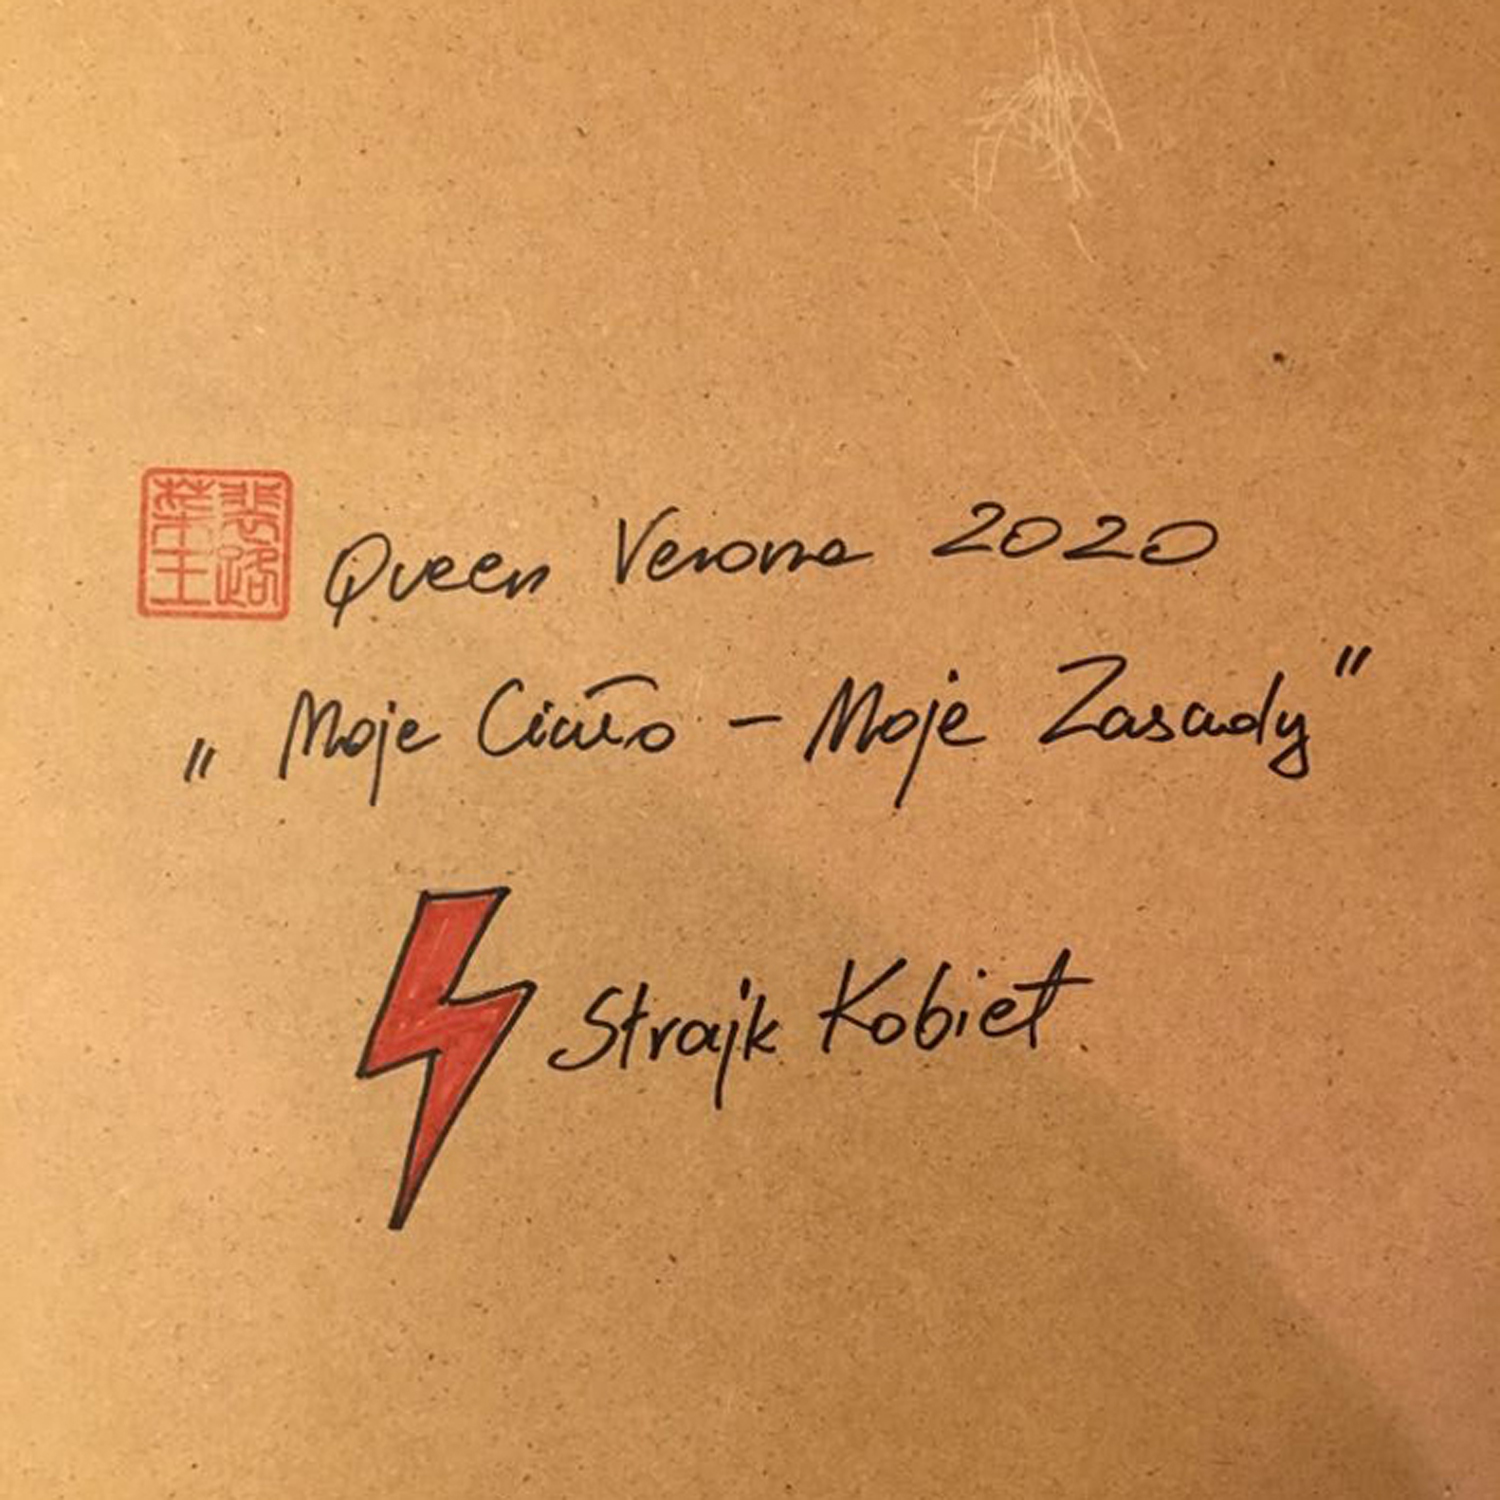 Queen Verona 2020
„Moje Ciało – Moje Zasady”
Strajk Kobiet